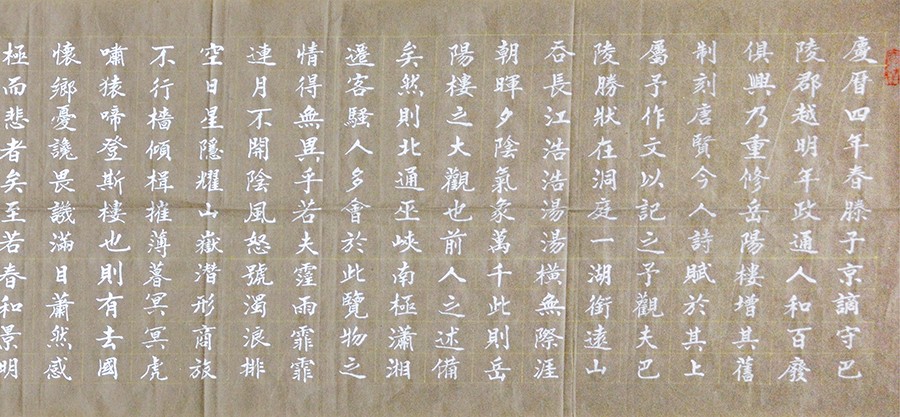 慶曆四年春滕子京謫守巴
陵郡越明年政通人和百廢
俱興乃重修岳陽樓增其舊
制刻唐賢今人詩賦於其上
屬予作文以記之予觀夫巴
陵勝狀在洞庭一湖銜遠山
吞長江浩浩湯湯橫無際涯
朝暉夕陰氣象萬千此則岳
陽樓之大觀也前人之述備
矣然則北通巫峽南極瀟湘
遷客騷人多會於此覽物之
情得無異乎若夫霪雨霏霏
連月不開陰風怒號濁浪排
空日星隱耀山嶽潛形商旅
不行檣傾楫摧薄暮冥冥虎
嘯猿啼登斯樓也則有去國
懷鄉憂讒畏譏滿目蕭然感
極而悲者矣至若春和景明